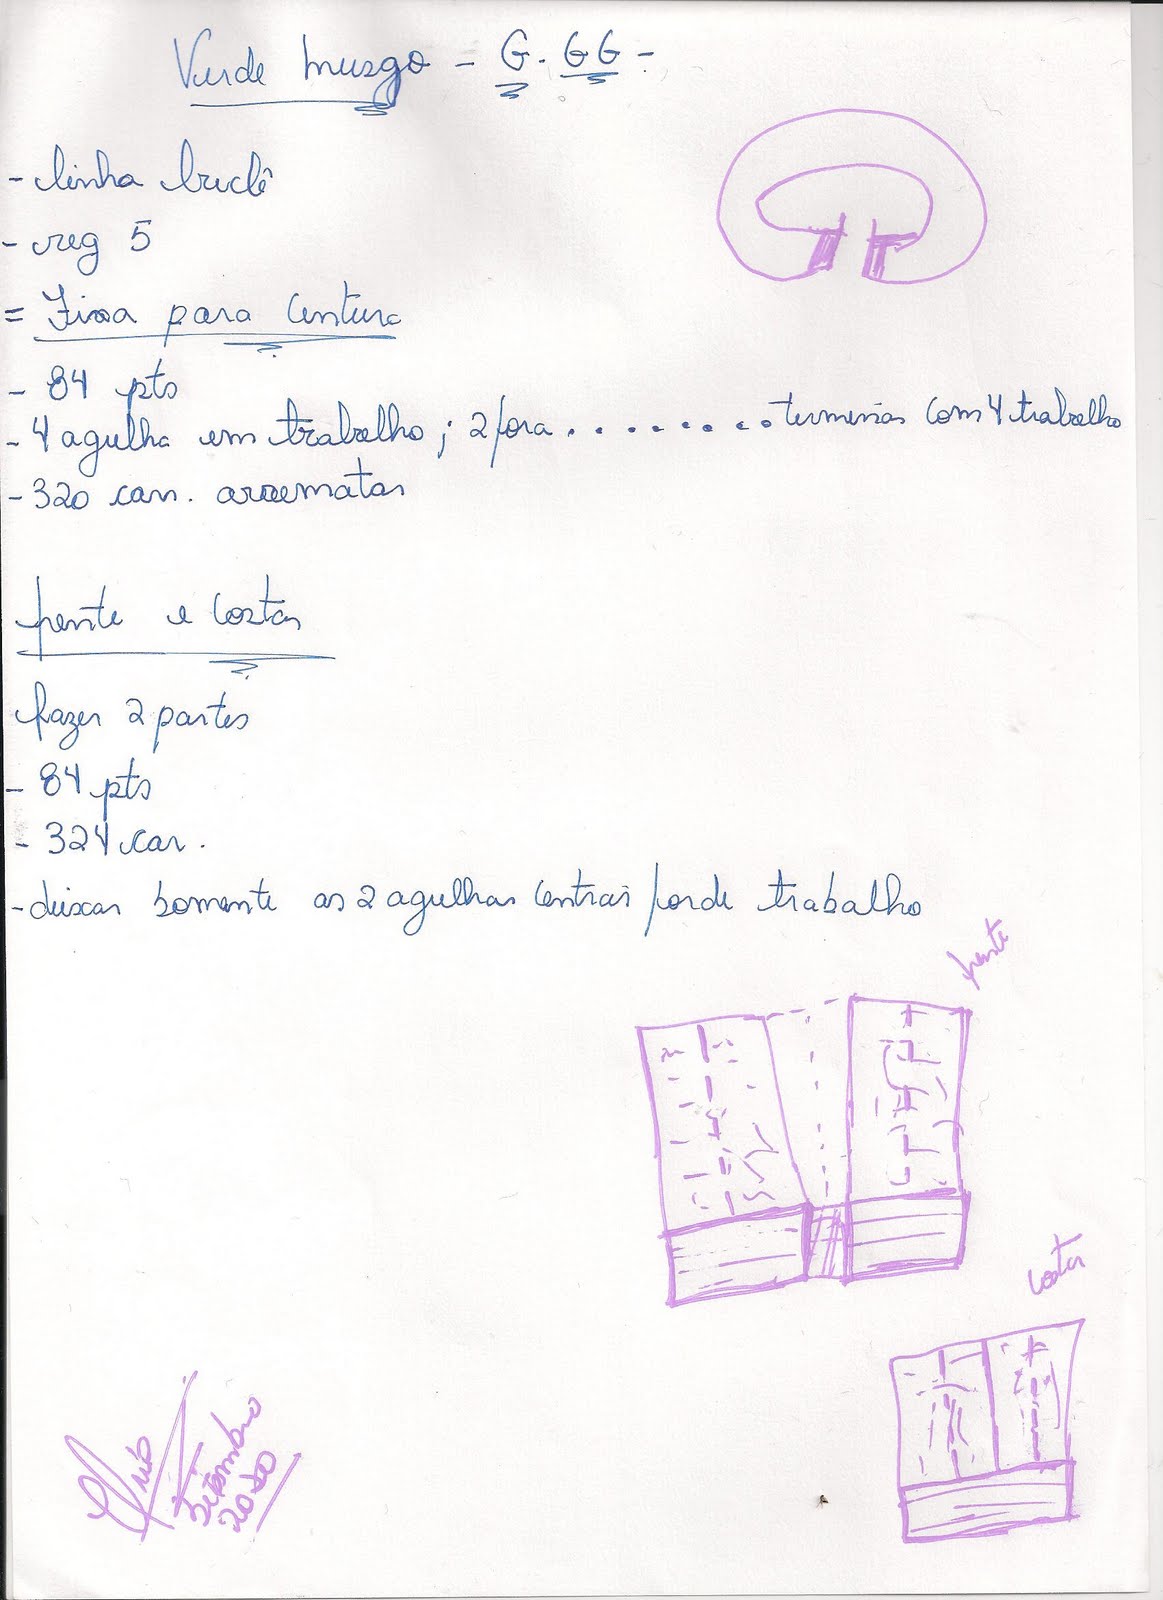 Verde musgo - G. GG -
- linha buclê
- reg 5
= Fixa para Centura
- 84 pts
- 4 agulha em trabalho; 2 fora ......... terminas com 4 trabalho
- 320 carr. arrematar
frente e Costas
fazer 2 partes
- 84 pts
- 324 car.
- deixar somente as 2 agulhas Centrais fora de trabalho
frente
Costas
Setembro